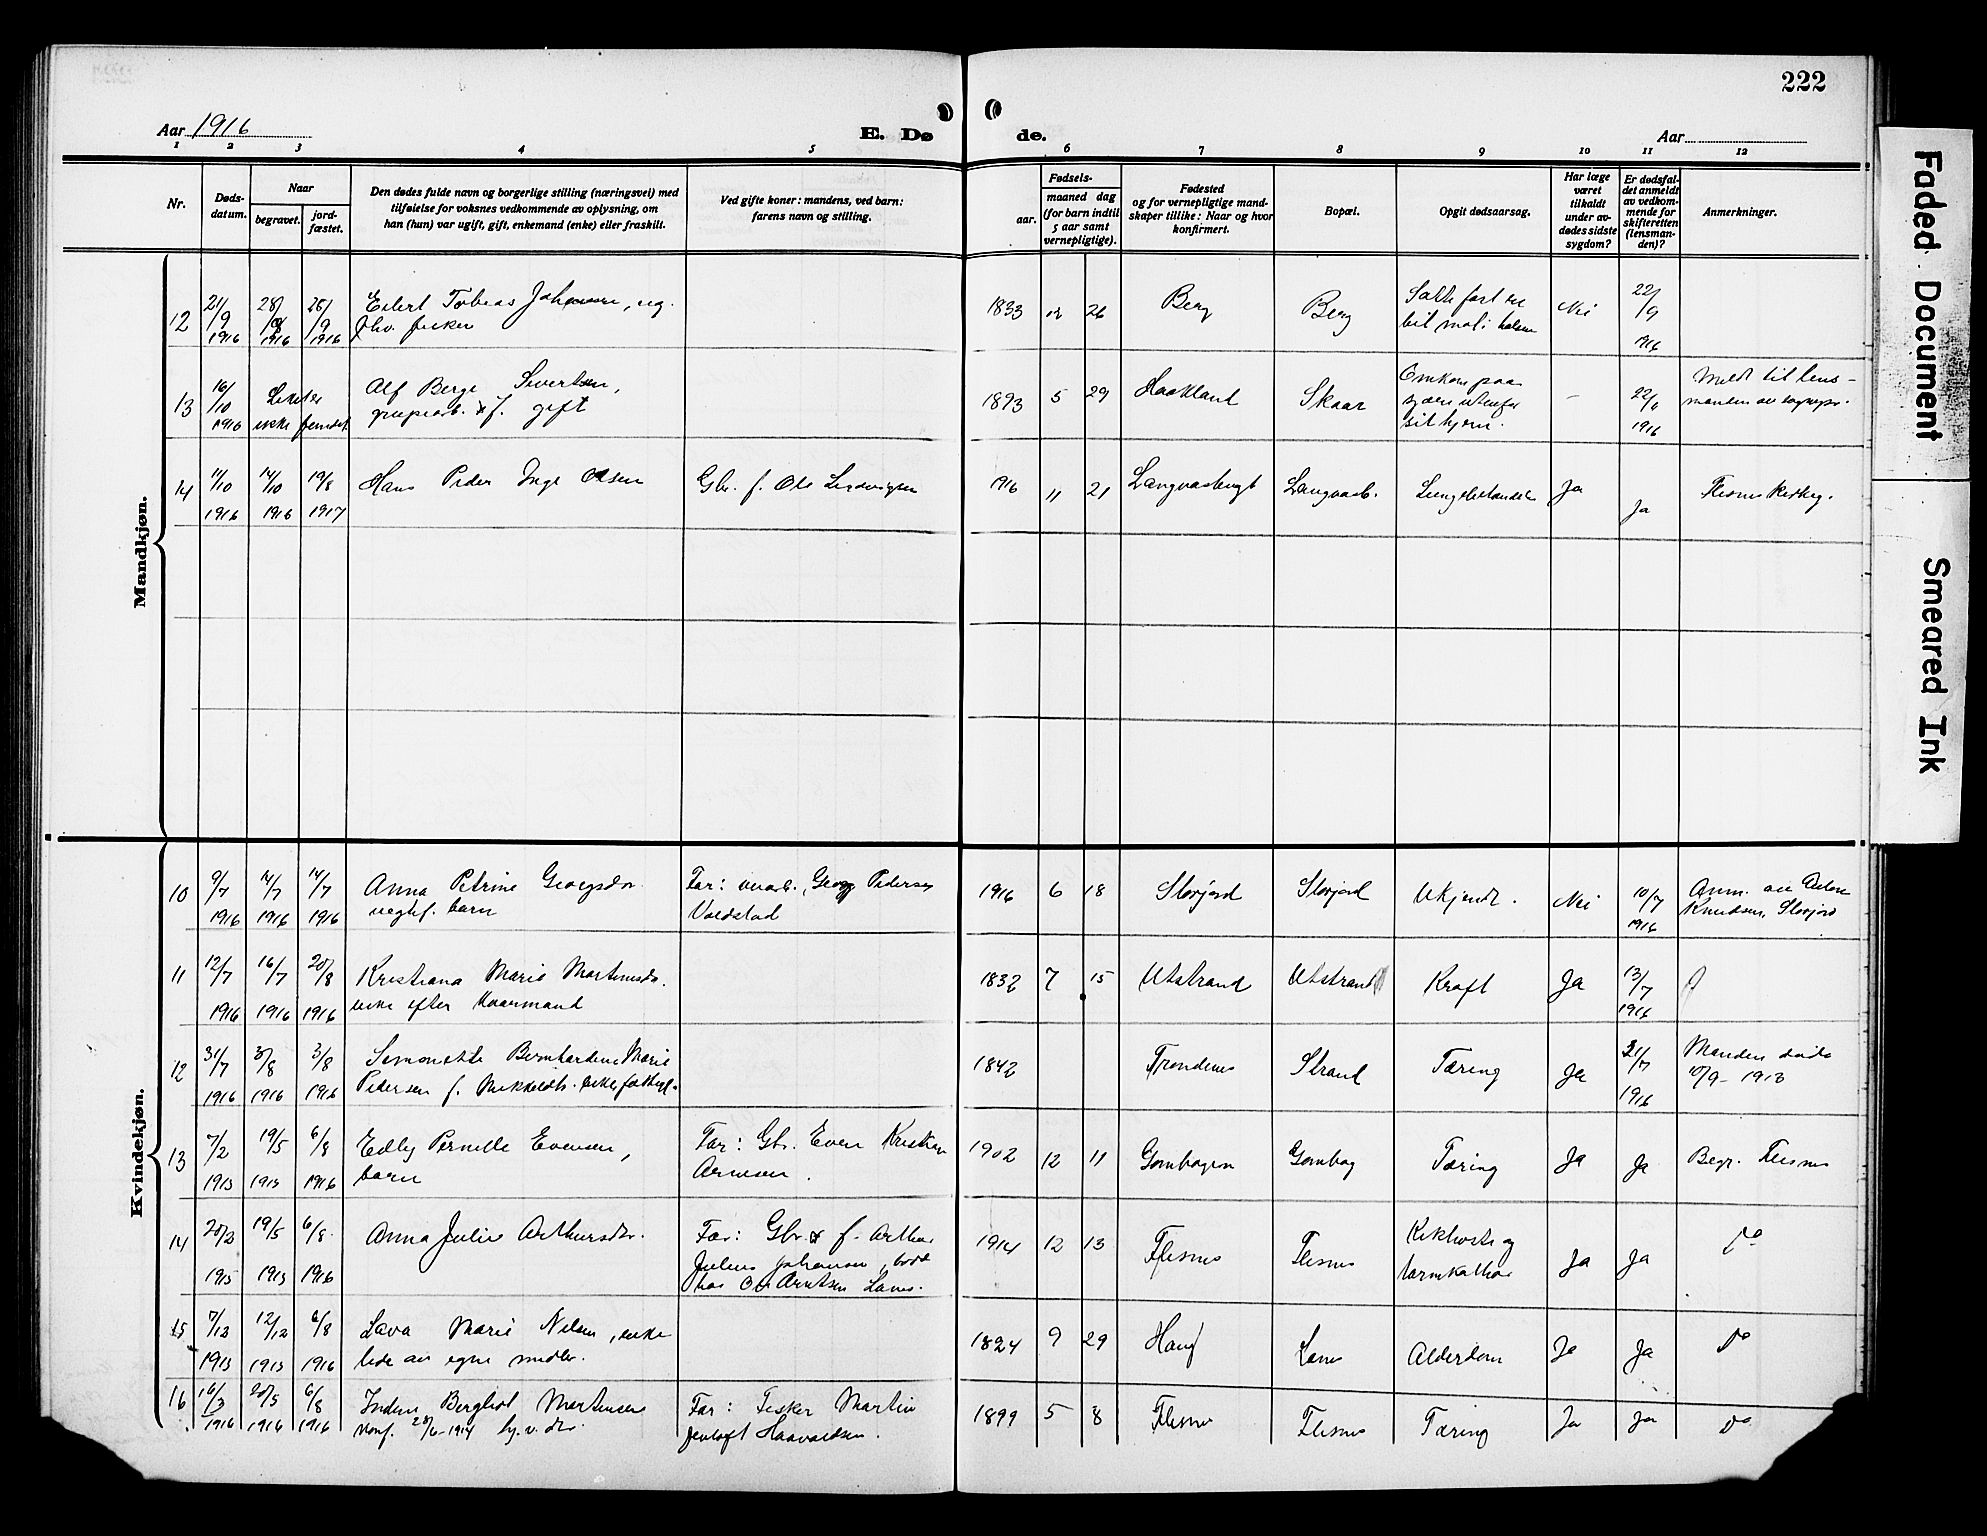 222
Aar 1916
E. Dø
de.
Aar
1 2 3 4 5 6 7 8 9 10 11 12
Nr.
Døds-
datum.
Naar
begravet.
jord-
fæstet.
Den dødes fulde navn og borgerlige stilling (næringsvei) med
tilføielse for voksnes vedkommende av oplysning, om
han (hun) var ugift, gift, enkemand (enke) eller fraskilt.
Ved gifte koner: mandens, ved barn:
farens navn og stilling.
Fødsels-
aar.
maaned dag
(for barn indtil
5 aar samt
vernepligtige).
Fødested
og for vernepligtige mand-
skaper tillike: Naar og hvor
konfirmert.
Bopæl.
Opgit dødsaarsag.
Har læge
været
tilkaldt
under av-
dødes sidste
sygdom?
Er dødsfal-
det anmeldt
av vedkom-
mende for
skifteretten
(lensman-
den)?
Anmerkninger.
Mandkjøn.
12 21/9 1916 28/9 1916 28/9 1916
Eilert Tobias Johansen, ug.
fisker
1833 26 Berg Berg
Satte fast en
bit mat i halsen
Nei 22/9 1916
13 16/10 1916
Liket er
ikke fundet
Alf Berge Sivertsen,
grubearb. & f. gift
1893 5 29 Haakland Skaar
Omkom paa
sjøen utenfor
sit hjem.
– 22/ 1916
Meldt til lens-
manden av sognepr.
14 11/10 1916 14/10 1916 19/8 1917
Hans Peder Inge Olsen
Gbr. f. Ole Ludvigsen
1916 11 21 Langvasbugt Langvasb. Lungebetændelse Ja Ja Flesnes kirkeg.
Kvindekjøn.
10 9/7 1916 14/7 1916 14/7 1916
Anna Petrine Georgsdtr.
uegtef. barn
Far: Georg Pedersen
Voldstad
1916 6 18 Storjord Storjord Ukjendt. Nei 10/7 1916
Anm. av
Knudsen, Storjord
11 12/7 1916 16/7 1916 20/8 1916
Kristiana Marie Martinusdtr.
enke efter Kvarmand
1832 7 15 Utstrand Utstrand Kræft Ja 13/7 1916
12 31/7 1916 3/8 1916 3/8 1916
Simonette Bernhardine Marie
Pedersen f. Mikkelsdtr. enke fattigl.
1842 Trondenes Strand Tæring Ja 31/7 1916
Manden døde
10/9 - 1913
13 7/2 1915 19/5 1915 6/8 1916
Edby Pernille Evensen,
barn
Far: Gbr. Even Kristian
Arnesen.
1902 12 11 Gombogen Gombog Tæring Ja Ja Begr. Flesnes
14 20/3 1915 19/5 1915 6/8 1916
Anna Julie Arthursdtr.
Far: Gbr. & f. Arthur
Julius Johansen, bodde
hos Ole Arntsen Lanes.
1914 12 13 Flesnes Flesnes
Kikhoste og
tarmkathar
Ja Ja Do
15 7/12 1915 12/12 1915 6/8 1916
Lava Marie Nilsen, enke
lede av egne midler.
1824 9 29 Haug Lanes Alderdom Ja Ja Do
16 16/3 1916 20/5 1916 6/8 1916
Indiane Bergliot Martinsen
Konf. 28/6-1914 hj.v. dtr.
Far: Fisker Martin
Jentoft Haavardsen.
1899 5 8 Flesnes Flesnes Tæring Ja Ja Do
Faded Document
Smeared Ink